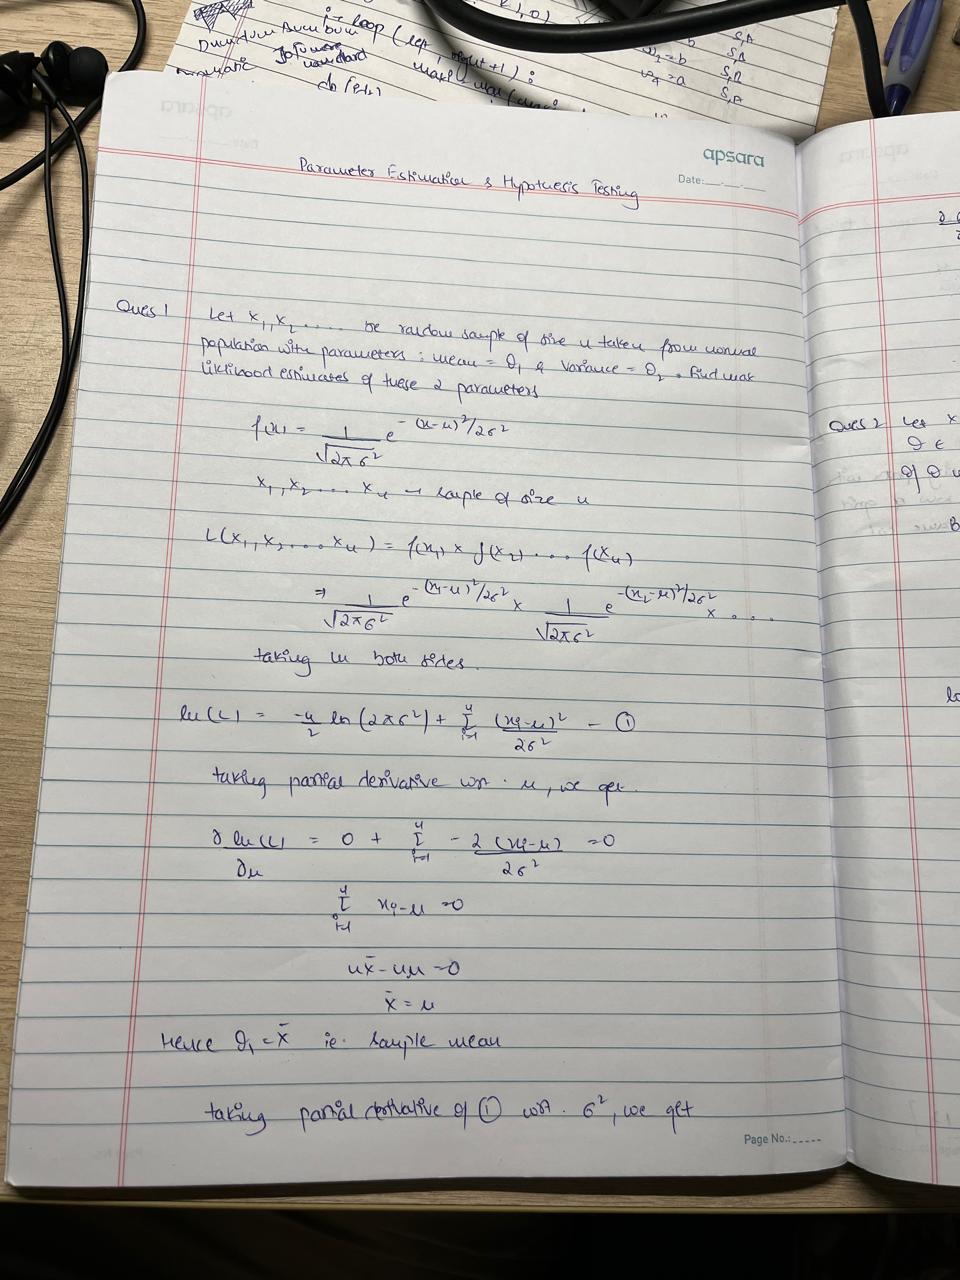 i → loop (left, right + 1) :
Software
db (Edis)
b
= b
= a
S,A
S,A
S,A
S,A
apsara
Date:
Parameter Estimation & Hypothesis Testing
Ques 1 Let x₁, x₂ ..... be random sample of size n taken from normal
population with parameters : mean = θ₁ & variance = θ₂. Find max
liklihood estimates of these 2 parameters
f(x) = 1/√2πσ² e^-(x-μ)²/2σ²
x₁, x₂ .... xₙ → sample of size n
L(x₁, x₂, ... xₙ) = f(x₁) × f(x₂) .... f(xₙ)
⇒ 1/√2πσ² e^-(x₁-μ)²/2σ² × 1/√2πσ² e^-(x₂-μ)²/2σ² × ...
taking ln both sides.
ln(L) = -n/2 ln(2πσ²) + Σ i=1 n (xi-μ)²/2σ² - ①
taking partial derivative wrt. μ, we get
∂ ln(L)/∂μ = 0 + Σ i=1 n - 2(xi-μ)/2σ² = 0
Σ i=1 n xi-μ = 0
nx̄ - nμ = 0
x̄ = μ
Hence θ₁ = x̄ ie. sample mean
taking partial derivative of ① wrt. σ², we get
Page No.:
Ques 2 Let x
θ ε
of θ
B